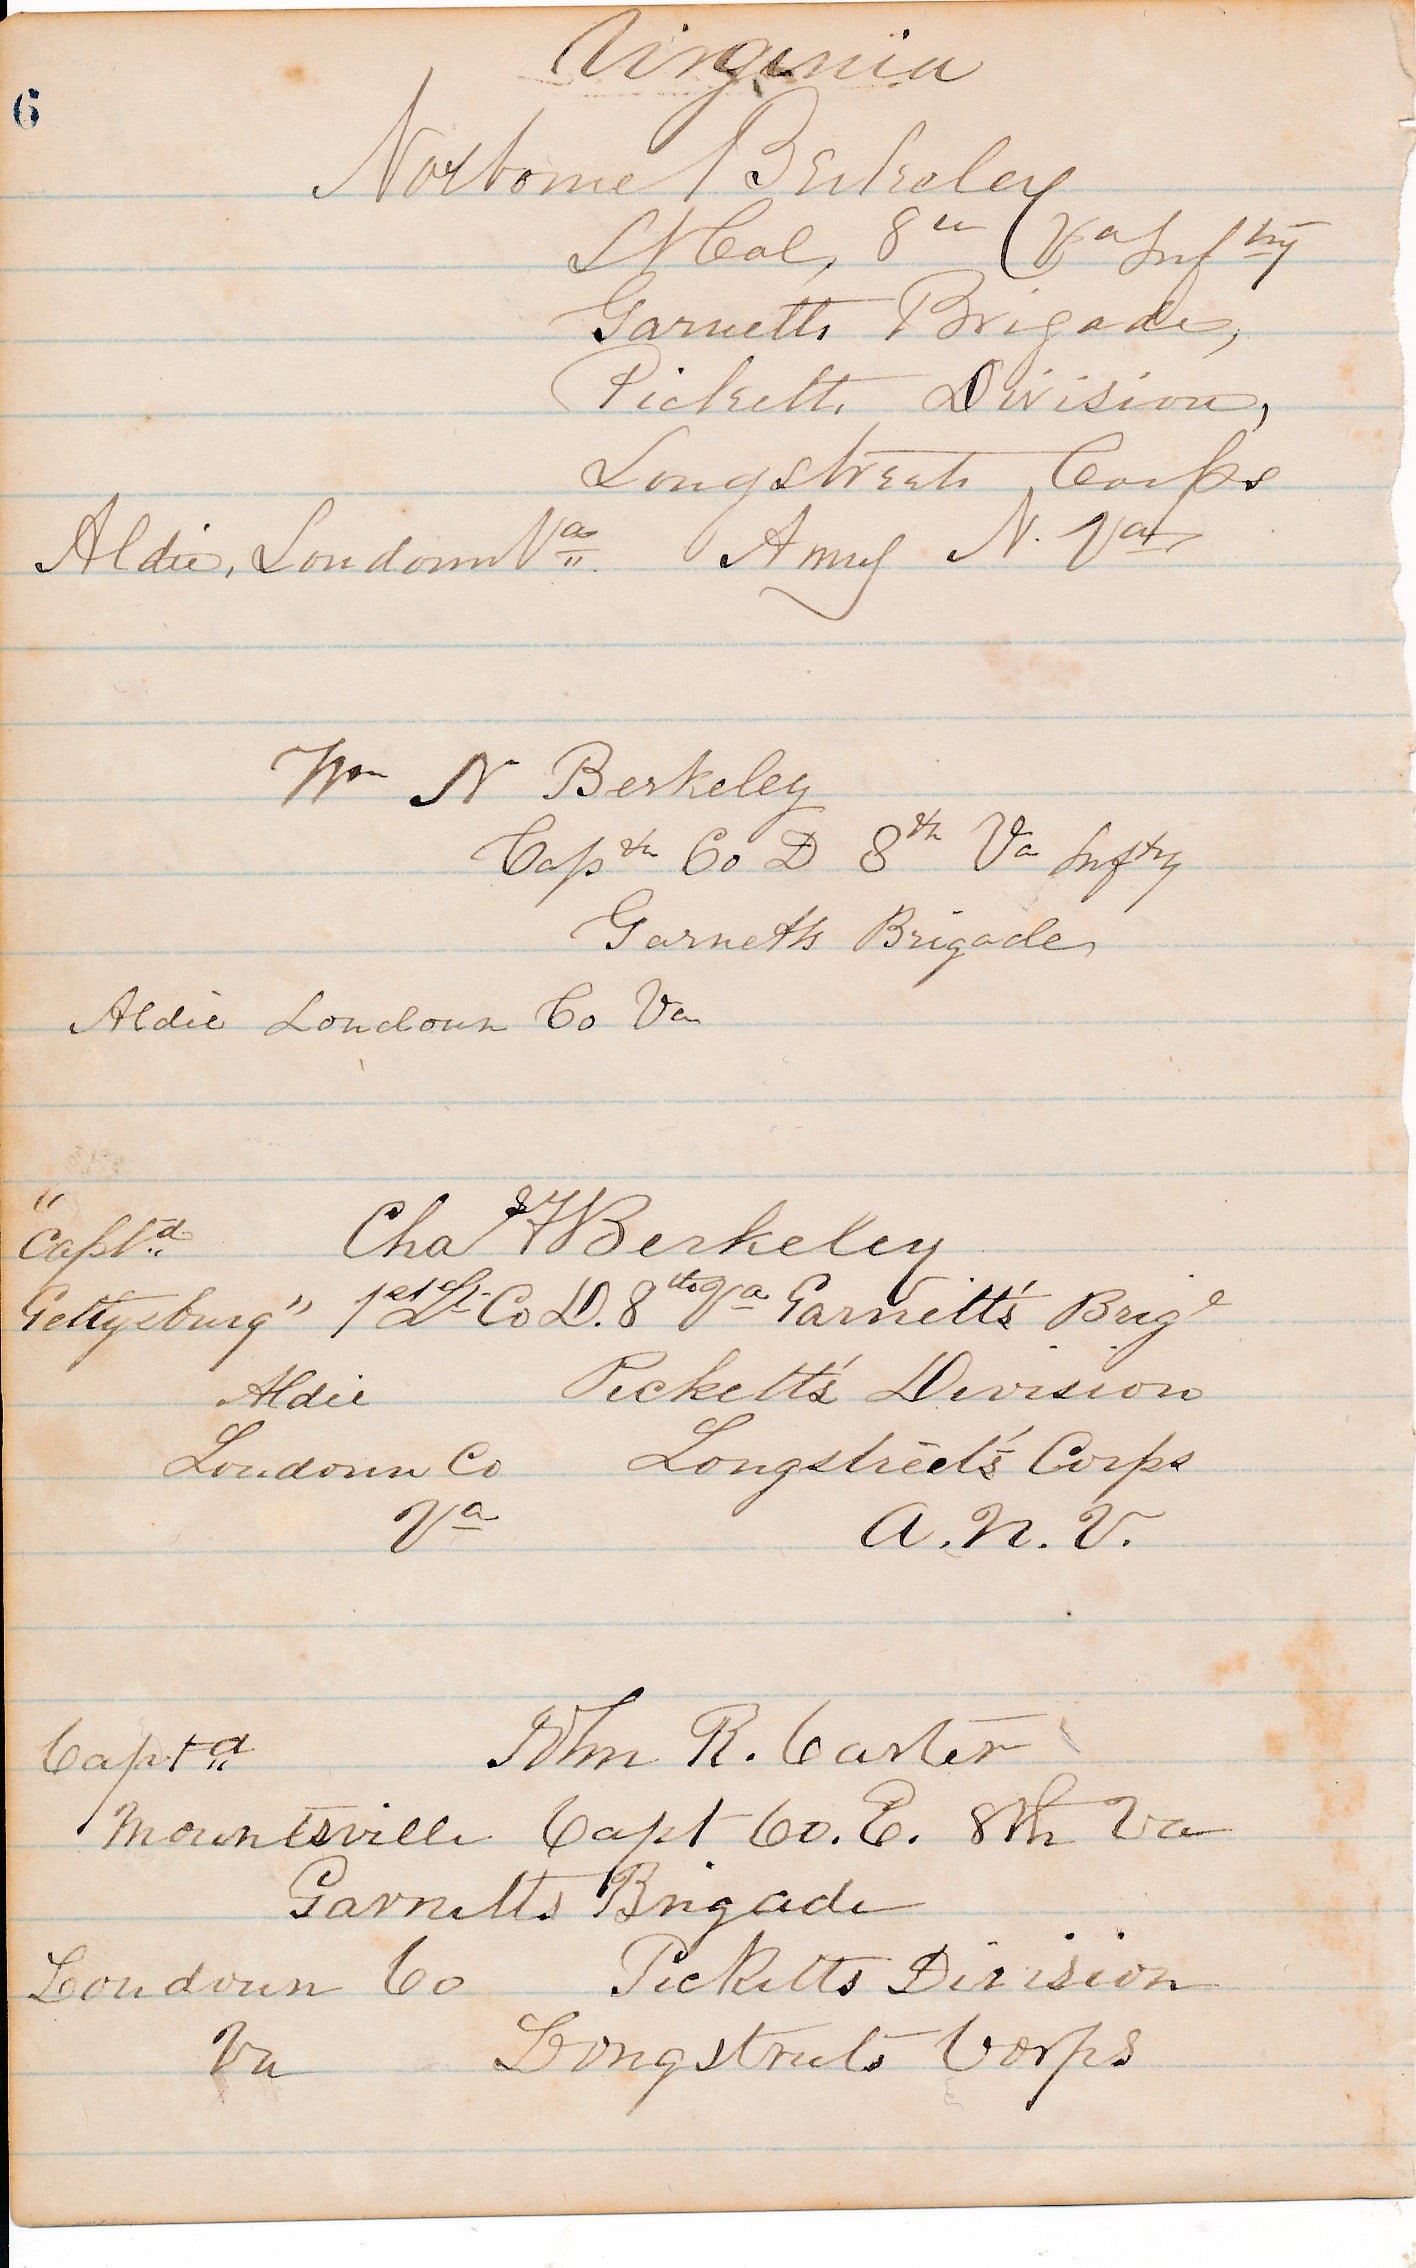 Virginia
6
Norborne Berkeley
Lt Col, 8th Va Inftry
Garnetts Brigade,
Picketts Division,
Longstreets Corps
Aldie, Loudoun Va. Army N. Va.
Wm N Berkeley
Capt Co D 8th Va Inftry
Garnetts Brigade
Aldie Loudoun Co Va
"Capt'd Chas F Berkeley
Gettysburg" 1st Lt Co D. 8th Va Garnett's Brige
Aldie Pickett's Division
Loudoun Co Longstreet's Corps
Va A. N. V.
Capt'd John R. Carter
Mountsville Capt Co. E. 8th Va
Garnetts Brigade
Loudoun Co Picketts Division
Va Longstreets Corps